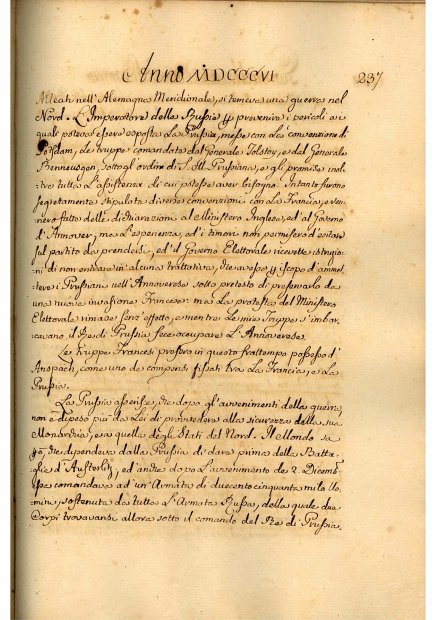 Anno MDCCCVI
237
Alleati nell'Alemagna Meridionale, si temeva una guerra nel
Nord. L'Imperatore della Russia per prevenire i pericoli a i
quali poteva essere esposta La Prussia, messe con La convenzione di
Posdam, Le truppe comandate dal Generale Tolstoy, e dal Generale
Benneusgen, sotto gl'ordini di S. M. Prussiana, e gli promise inol-
tre tutta L'assistenza di cui potesse aver bisogno. Intanto furono
segretamente stipulate diverse convenzioni con La Francia, e ven-
nero fatte delle dichiarazioni al Ministero Inglese, ed al Governo
d'Annover, ma L'esperienza, ed i timori non permisero d'esitare
sul partito da prendersi, ed il Governo Elettorale ricevette istruzio-
ni di non entrare in alcuna trattativa, che avesse per scopo d'amme-
ttere i Prussiani nell'Annoverese sotto pretesto di preservarlo da
una nuova invasione Francese: ma La protesta del Ministero
Elettorale rimase senz'effetto, e mentre Le mie Truppe s'imbar-
cavano il Re di Prussia fece occupare L'Annoverese.
Le Truppe Francesi presero in questo frattempo possesso d'
Anspach, come uno de compensi fissati tra La Francia, e La
Prussia.
La Prussia asserisce, che dopo gl'avvenimenti della guerra,
non è dipeso più da Lei di provvedere alla sicurezza della sua
Monarchia, e a quella degli Stati del Nord. Il Mondo sa
che dipendeva dalla Prussia di dare prima della Batta-
glia d'Austerlitz, ed anche dopo L'avvenimento de 2 Dicemb-
comandava ad un'Armata di duecento cinquanta mila Uo-
mini, sostenuta da tutta L'Armata Russa, della quale due
Corpi trovavansi allora sotto il comando del Re di Prussia.